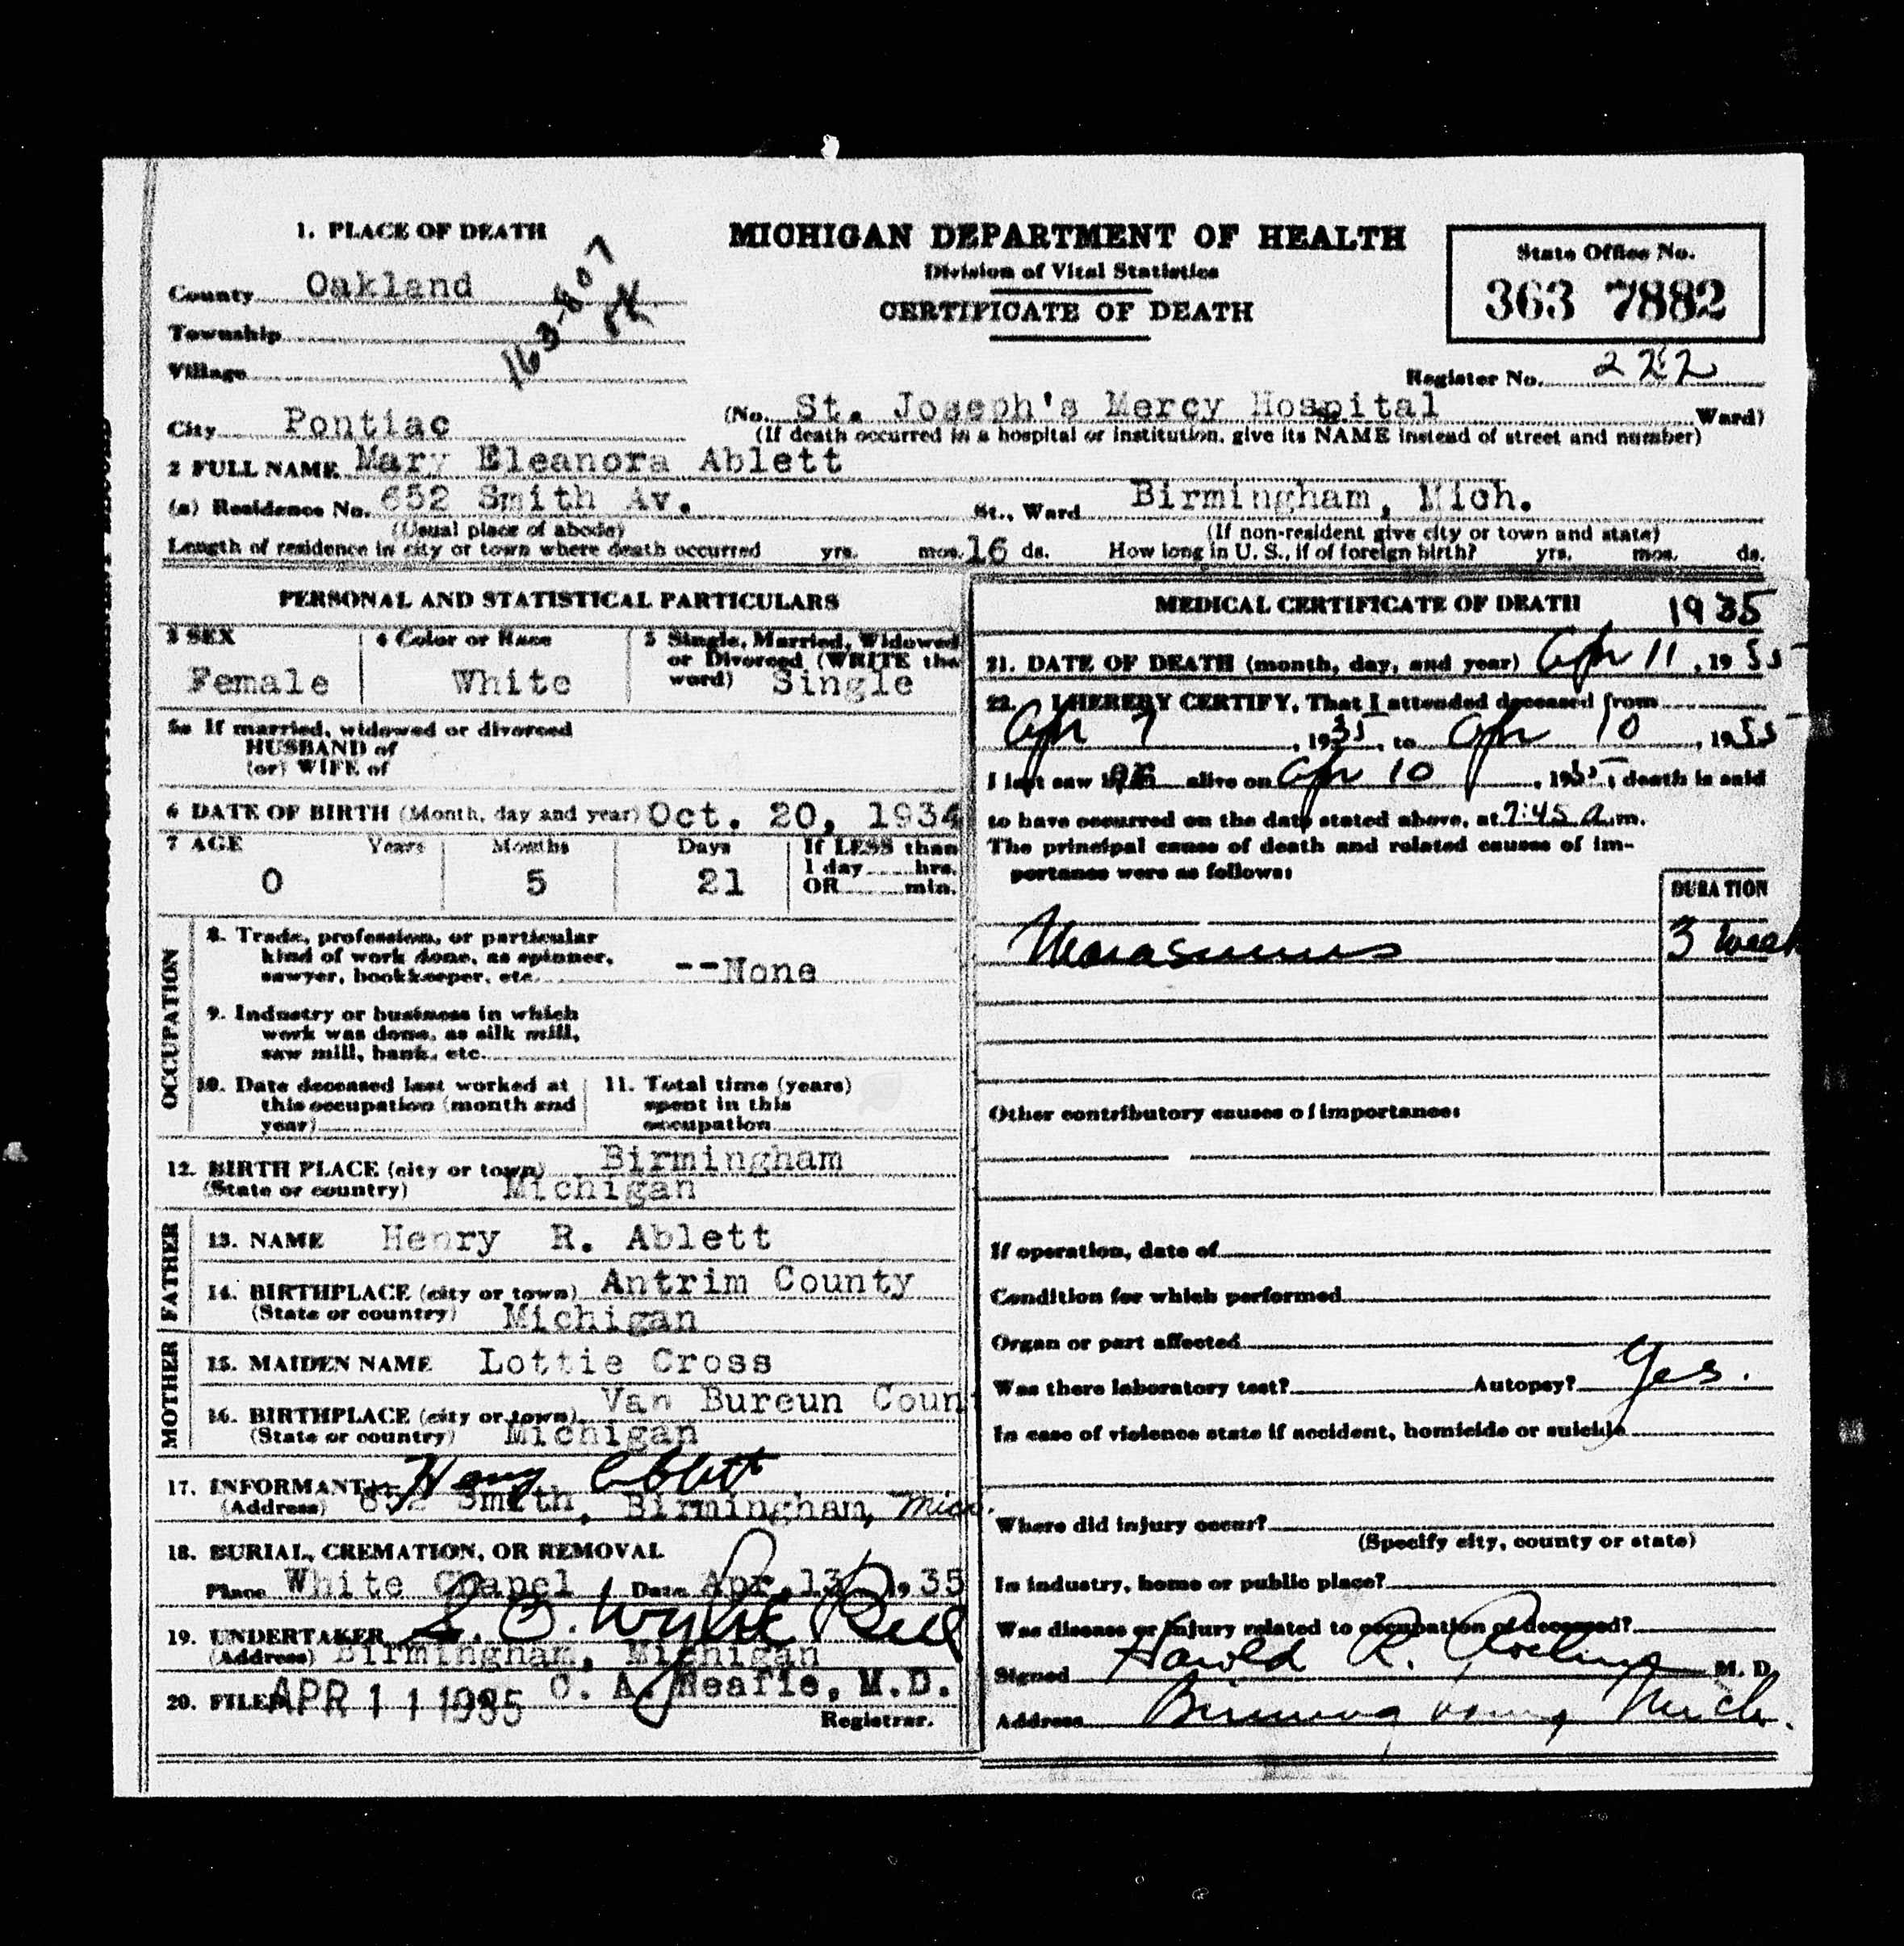 1. PLACE OF DEATH
County Oakland
Township
Village
163-807
MICHIGAN DEPARTMENT OF HEALTH
Division of Vital Statistics
CERTIFICATE OF DEATH
State Office No.
363 7882
Register No. 222
City Pontiac (No. St. Joseph's Mercy Hospital Ward)
(If death occurred in a hospital or institution, give its NAME instead of street and number)
2 FULL NAME Mary Eleanora Ablett
(a) Residence No. 652 Smith Av. St., Ward Birmingham, Mich.
(Usual place of abode) (If non-resident give city or town and state)
Length of residence in city or town where death occurred yrs. mos. 16 ds. How long in U. S., if of foreign birth? yrs. mos. ds.
PERSONAL AND STATISTICAL PARTICULARS
3 SEX
Female
4 Color or Race
White
5 Single, Married, Widowed
or Divorced (WRITE the
word) Single
5a If married, widowed or divorced
HUSBAND of
(or) WIFE of
6 DATE OF BIRTH (Month, day and year) Oct. 20, 1934
7 AGE Years Months Days If LESS than
1 day hrs.
0 5 21 OR min.
OCCUPATION
8. Trade, profession, or particular
kind of work done, as spinner,
sawyer, bookkeeper, etc. --None
9. Industry or business in which
work was done, as silk mill,
saw mill, bank, etc.
10. Date deceased last worked at
this occupation (month and
year)
11. Total time (years)
spent in this
occupation
12. BIRTH PLACE (city or town) Birmingham
(State or country) Michigan
FATHER
13. NAME Henry R. Ablett
14. BIRTHPLACE (city or town) Antrim County
(State or country) Michigan
MOTHER
15. MAIDEN NAME Lottie Cross
16. BIRTHPLACE (city or town) Van Bureun Coun
(State or country) Michigan
17. INFORMANT Henry Ablett
(Address) 652 Smith, Birmingham, Mich.
18. BURIAL, CREMATION, OR REMOVAL
Place White Chapel Date Apr. 13, 1935
19. UNDERTAKER
(Address) Birmingham, Michigan
20. FILED APR 11 1935 C. A. Neafie, M.D.
Registrar.
MEDICAL CERTIFICATE OF DEATH 1935
21. DATE OF DEATH (month, day, and year) Apr 11, 1935
22. I HEREBY CERTIFY, That I attended deceased from
Apr 7, 1935, to Apr 10, 1935
I last saw her alive on Apr 10, 1935; death is said
to have occurred on the date stated above, at 7:45 a.m.
The principal cause of death and related causes of im-
portance were as follows:
DURATION
Marasmus 3 week
Other contributory causes of importance:
If operation, date of
Condition for which performed
Organ or part affected
Was there laboratory test? Autopsy? Yes.
In case of violence state if accident, homicide or suicide
Where did injury occur?
(Specify city, county or state)
In industry, home or public place?
Was disease or injury related to occupation of deceased?
Signed Harold R. M. D.
Address Birmingham Mich.